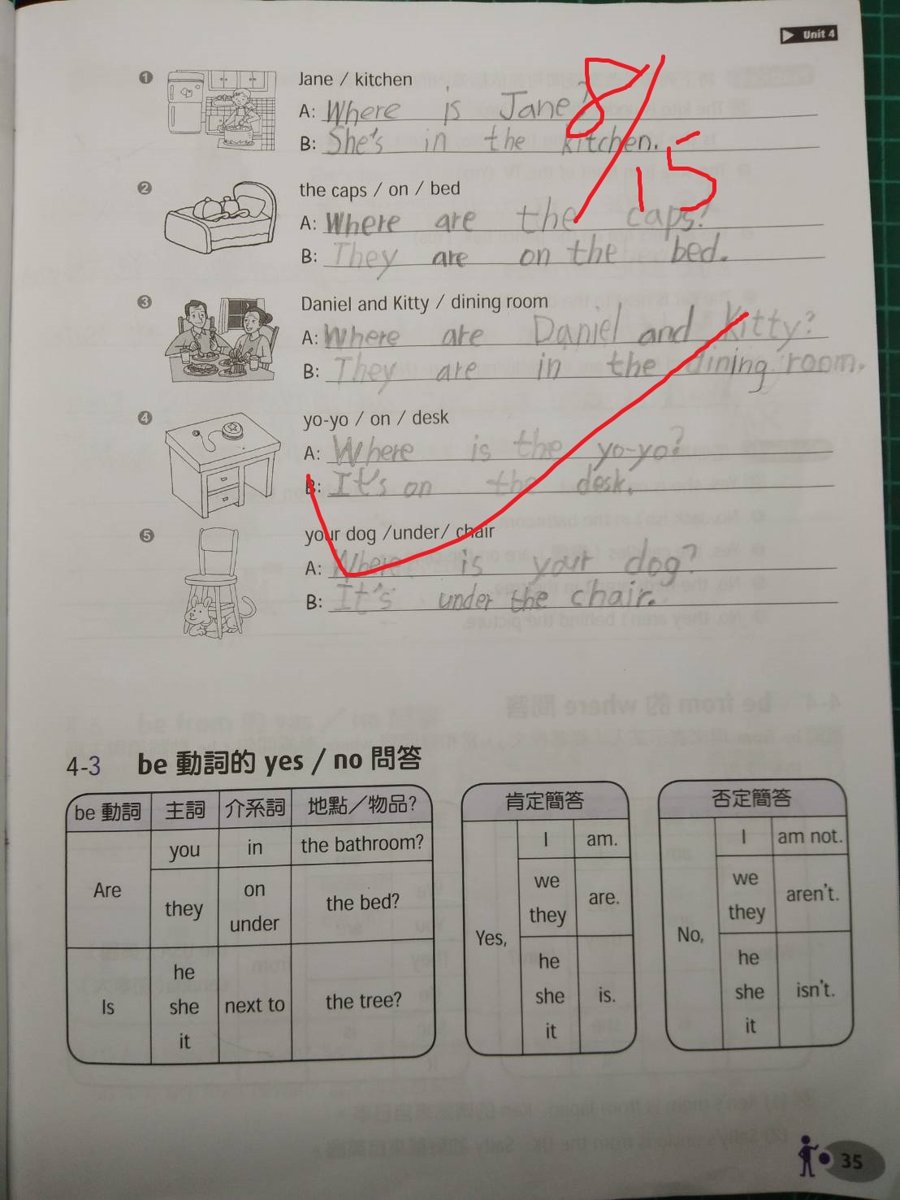 Unit 4
1 Jane / kitchen
A: Where is Jane?
B: She's in the kitchen.
8/15
2 the caps / on / bed
A: Where are the caps?
B: They are on the bed.
3 Daniel and Kitty / dining room
A: Where are Daniel and Kitty?
B: They are in the dining room.
4 yo-yo / on / desk
A: Where is the yo-yo?
B: It's on the desk.
5 your dog /under/ chair
A: Where is your dog?
B: It's under the chair.
4-3 be 動詞的 yes / no 問答
be 動詞 主詞 介系詞 地點／物品?
Are
you in the bathroom?
they
on
under
the bed?
Is
he
she
it
next to the tree?
肯定簡答
Yes,
I am.
we
they
are.
he
she
it
is.
否定簡答
No,
I am not.
we
they
aren't.
he
she
it
isn't.
35